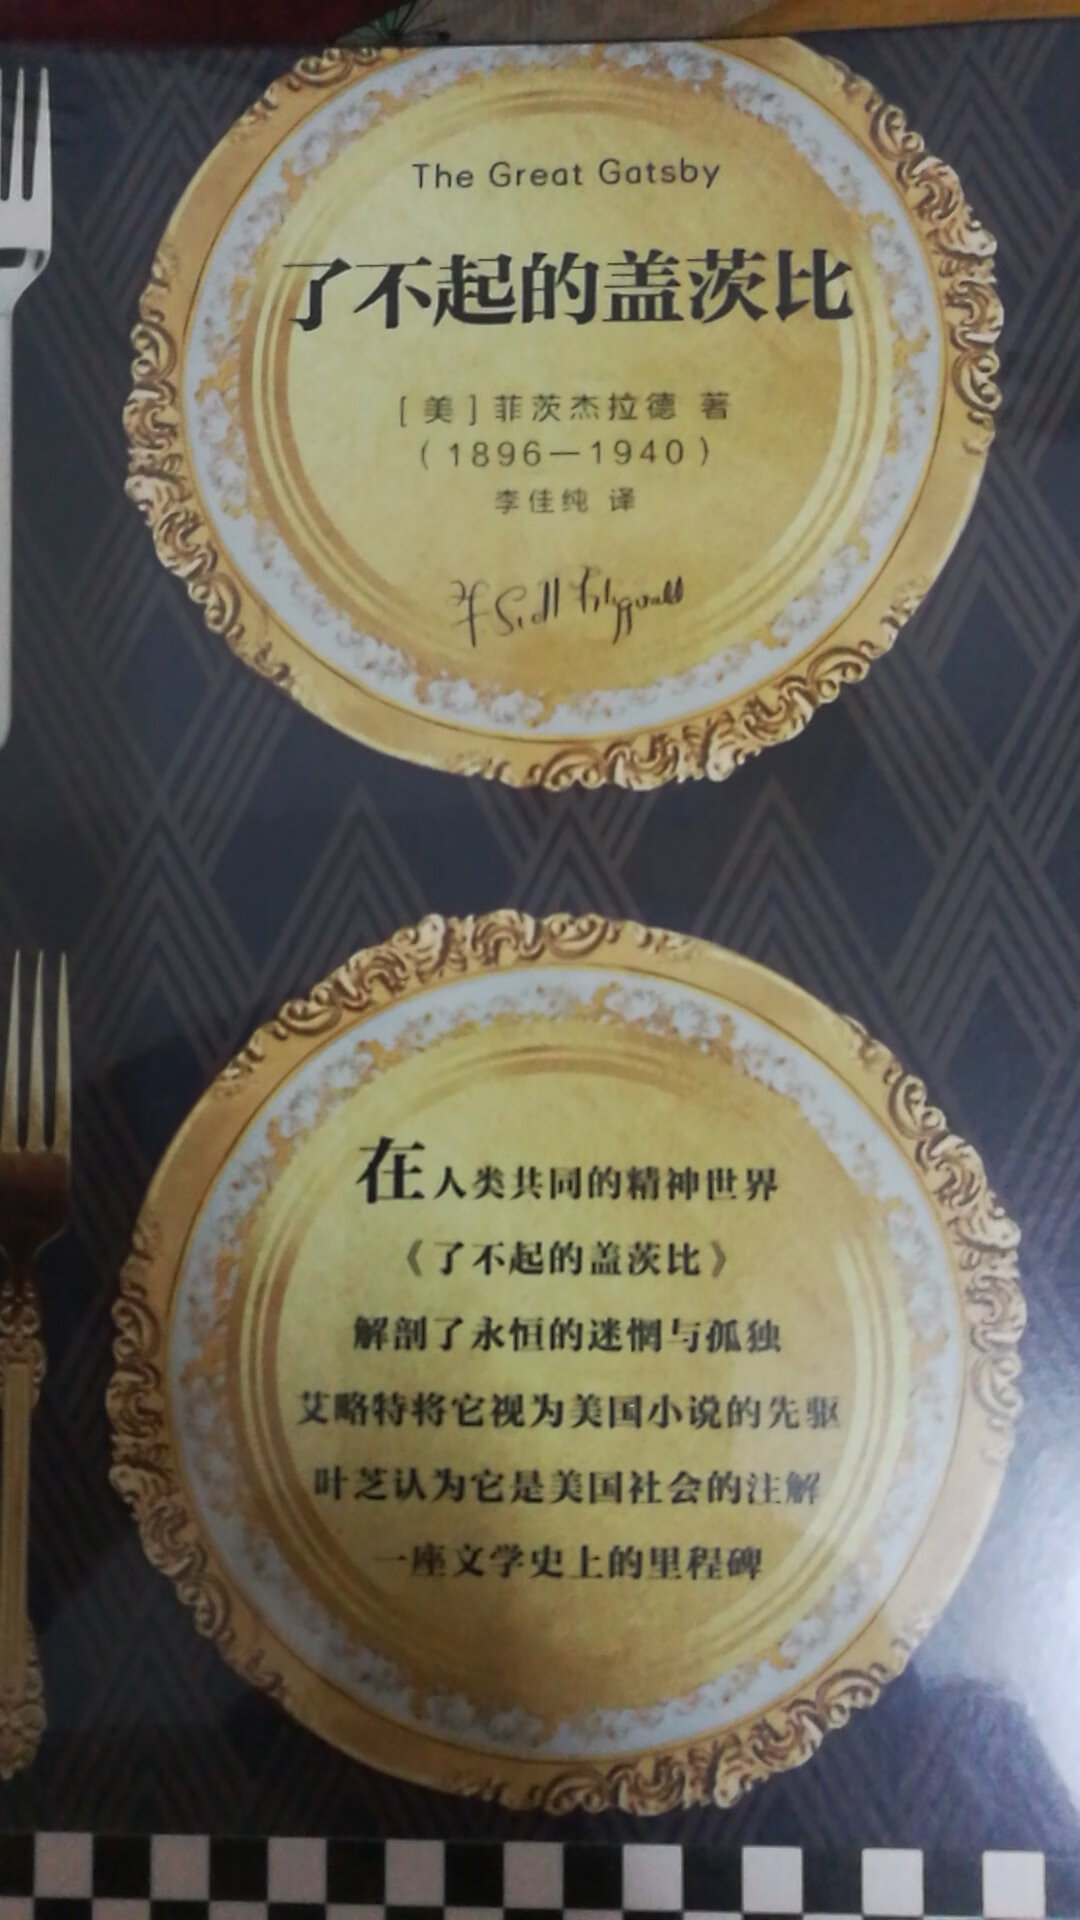 The Great Gatsby
了不起的盖茨比
[美]菲茨杰拉德 著
(1896—1940)
李佳纯 译
在人类共同的精神世界
《了不起的盖茨比》
解剖了永恒的迷惘与孤独
艾略特将它视为美国小说的先驱
叶芝认为它是美国社会的注解
一座文学史上的里程碑